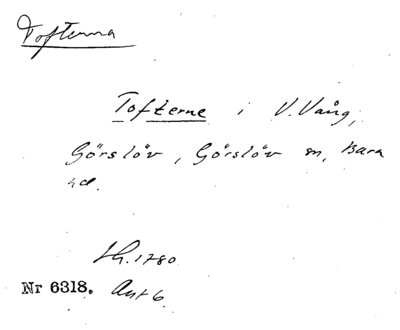 Tofterna
Tofterne i V. Vång,
Görslöv, Görslöv sn, Bara
hd.
Lh. 1780
Nr 6318. Akt 6.